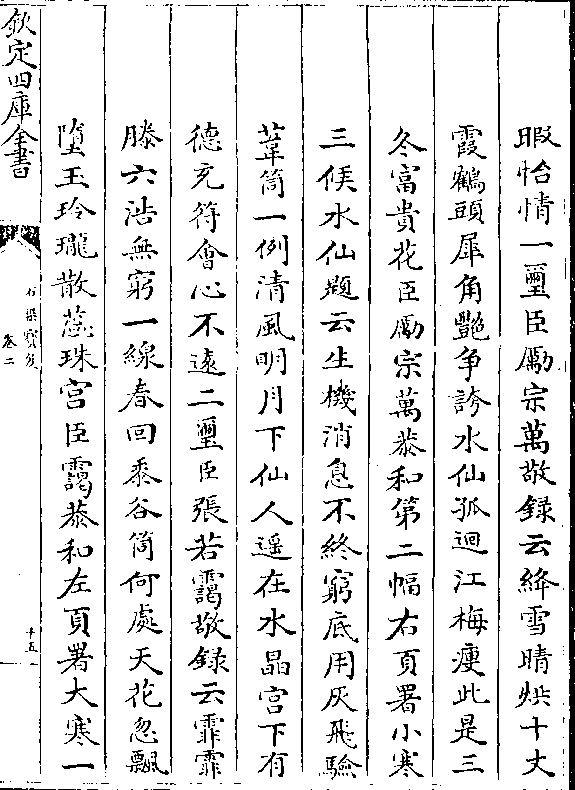 暇怡情一璽臣勵宗萬敬録云絳雪晴烘十丈
霞鶴頭犀角艷争誇水仙孤迥江梅瘦此是三
冬富貴花臣勵宗萬恭和第二幅右頁署小寒
三候水仙題云生機消息不終窮底用灰飛驗
葦筒一例清風明月下仙人遥在水晶宫下有
德充符會心不遠二璽臣張若靄敬録云霏霏
滕六浩無窮一線春回黍谷筒何處天花忽飄
墮玉玲瓏散蕊珠宫臣靄恭和左頁署大寒一
欽定四庫全書
石渠寶笈
卷二
十五